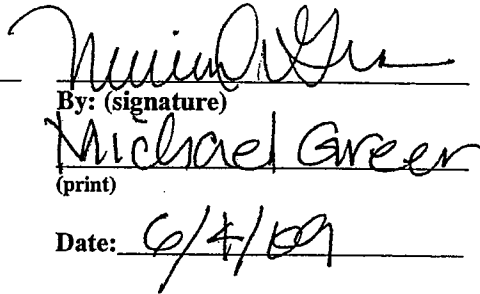 By: (signature)
Michael Greer
(print)
Date: 6/4/09